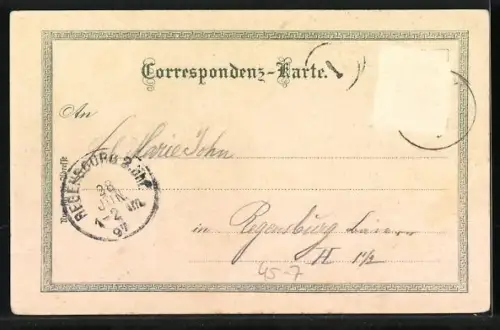 Correspondenz-Karte.
An
Frl. Marie John
REGENSBURG 2. Bhf.
28
JUN.
1-2 NM.
97
in Regensburg Baiern
H 1/2
45-7